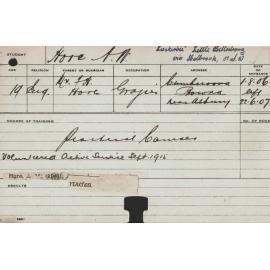 STUDENT Hore A. W. Little Billabong
via Holbrook, N.S.W
AGE RELIGION PARENT OR GUARDIAN OCCUPATION ADDRESS DATE OF ENTRANCE
19 Mr. Hore Grazier Cumberoona 1.8.06
Bowna left
near Albury 22.6.07
COURSE OF TRAINING
Practical Course
Volunteered Active Service Sept. 1915
Hore
RESULTS
RESULTS